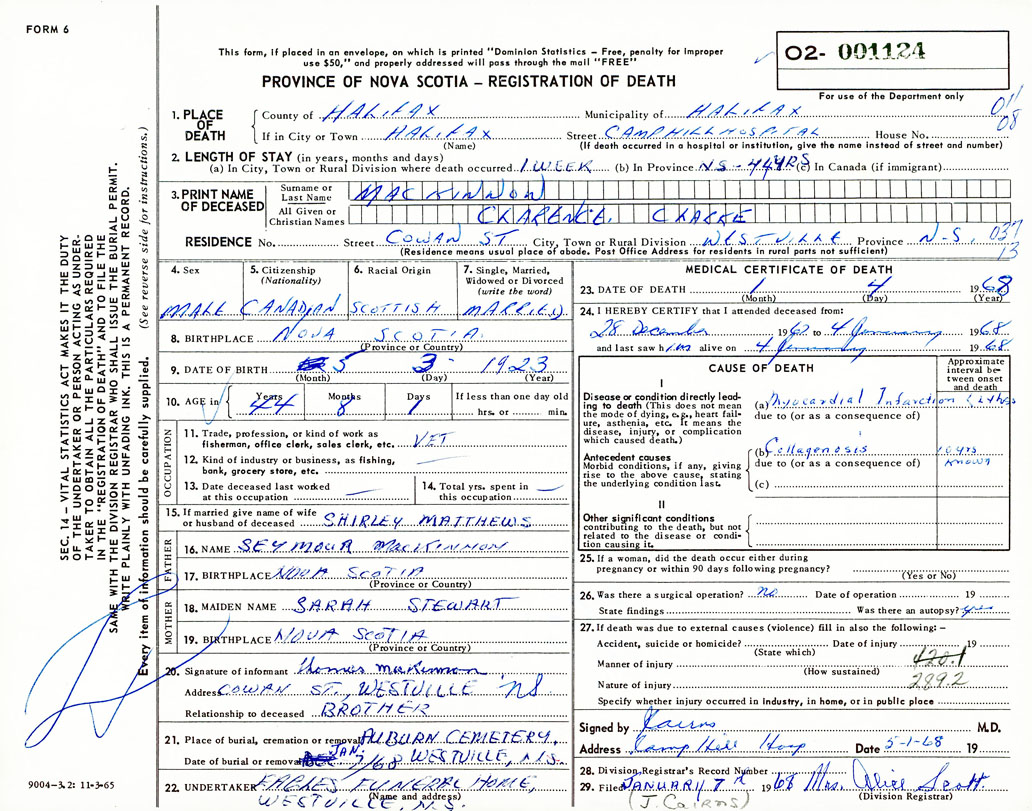 FORM 6
This form, if placed in an envelope, on which is printed "Dominion Statistics – Free, penalty for improper
use $50," and properly addressed will pass through the mail "FREE"
PROVINCE OF NOVA SCOTIA – REGISTRATION OF DEATH
O2- 001124
For use of the Department only
011
08
1. PLACE OF DEATH
County of HALIFAX Municipality of HALIFAX
If in City or Town HALIFAX Street CAMPHILL HOSPITAL House No.
(Name) (If death occurred in a hospital or institution, give the name instead of street and number)
2. LENGTH OF STAY (in years, months and days)
(a) In City, Town or Rural Division where death occurred 1 WEEK (b) In Province NS - 44YRS (c) In Canada (if immigrant)
3. PRINT NAME OF DECEASED
Surname or Last Name MACKINNON
All Given or Christian Names CLARENCE CLARKE
RESIDENCE No. Street COWAN ST City, Town or Rural Division WESTVILLE Province N-S. 037
13
(Residence means usual place of abode. Post Office Address for residents in rural parts not sufficient)
4. Sex MALE
5. Citizenship (Nationality) CANADIAN
6. Racial Origin SCOTTISH
7. Single, Married, Widowed or Divorced (write the word) MARRIED
8. BIRTHPLACE NOVA SCOTIA
(Province or Country)
9. DATE OF BIRTH 5 3 1923
(Month) (Day) (Year)
10. AGE in Years 44 Months 8 Days 1 If less than one day old
hrs. or min.
OCCUPATION
11. Trade, profession, or kind of work as
fisherman, office clerk, sales clerk, etc. VET
12. Kind of industry or business, as fishing,
bank, grocery store, etc.
13. Date deceased last worked
at this occupation
14. Total yrs. spent in
this occupation
15. If married give name of wife
or husband of deceased SHIRLEY MATTHEWS
FATHER
16. NAME SEYMOUR MACKINNON
17. BIRTHPLACE NOVA SCOTIA
(Province or Country)
MOTHER
18. MAIDEN NAME SARAH STEWART
19. BIRTHPLACE NOVA SCOTIA
(Province or Country)
20. Signature of informant Thomas MacKinnon
Address COWAN ST., WESTVILLE NS
Relationship to deceased BROTHER
21. Place of burial, cremation or removal AUBURN CEMETERY,
Date of burial or removal JAN. 7/68 WESTVILLE, N.S.
22. UNDERTAKER EAGLES FUNERAL HOME,
(Name and address)
WESTVILLE, N.S.
MEDICAL CERTIFICATE OF DEATH
23. DATE OF DEATH 1 4 1968
(Month) (Day) (Year)
24. I HEREBY CERTIFY that I attended deceased from:
28 December 1967 to 4 January 1968
and last saw him alive on 4 January 1968
CAUSE OF DEATH
Approximate interval between onset and death
I
Disease or condition directly leading to death (This does not mean the mode of dying, e.g., heart failure, asthenia, etc. It means the disease, injury, or complication which caused death.)
(a) Myocardial Infarction
due to (or as a consequence of)
Antecedent causes
Morbid conditions, if any, giving rise to the above cause, stating the underlying condition last.
(b) Collagenosis 10 yrs known
due to (or as a consequence of)
(c)
II
Other significant conditions
contributing to the death, but not related to the disease or condition causing it.
25. If a woman, did the death occur either during
pregnancy or within 90 days following pregnancy?
(Yes or No)
26. Was there a surgical operation? no Date of operation 19
State findings Was there an autopsy? yes
27. If death was due to external causes (violence) fill in also the following:–
Accident, suicide or homicide? Date of injury 19
(State which)
Manner of injury 420.1
(How sustained)
Nature of injury 289.2
Specify whether injury occurred in industry, in home, or in public place
Signed by Kairns M.D.
Address Camp Hill Hosp Date 5-1-68 19
28. Division Registrar's Record Number
29. Filed JANUARY 7th 1968 Mrs. Alice Scott
(Division Registrar)
(J. Cairns)
SEC. 14 – VITAL STATISTICS ACT MAKES IT THE DUTY
OF THE UNDERTAKER OR PERSON ACTING AS UNDER-
TAKER TO OBTAIN ALL THE PARTICULARS REQUIRED
IN THE "REGISTRATION OF DEATH" AND TO FILE THE
SAME WITH THE DIVISION REGISTRAR WHO SHALL ISSUE THE BURIAL PERMIT.
WRITE PLAINLY WITH UNFADING INK. THIS IS A PERMANENT RECORD.
Every item of information should be carefully supplied. (See reverse side for instructions.)
9004-3.2: 11-3-65